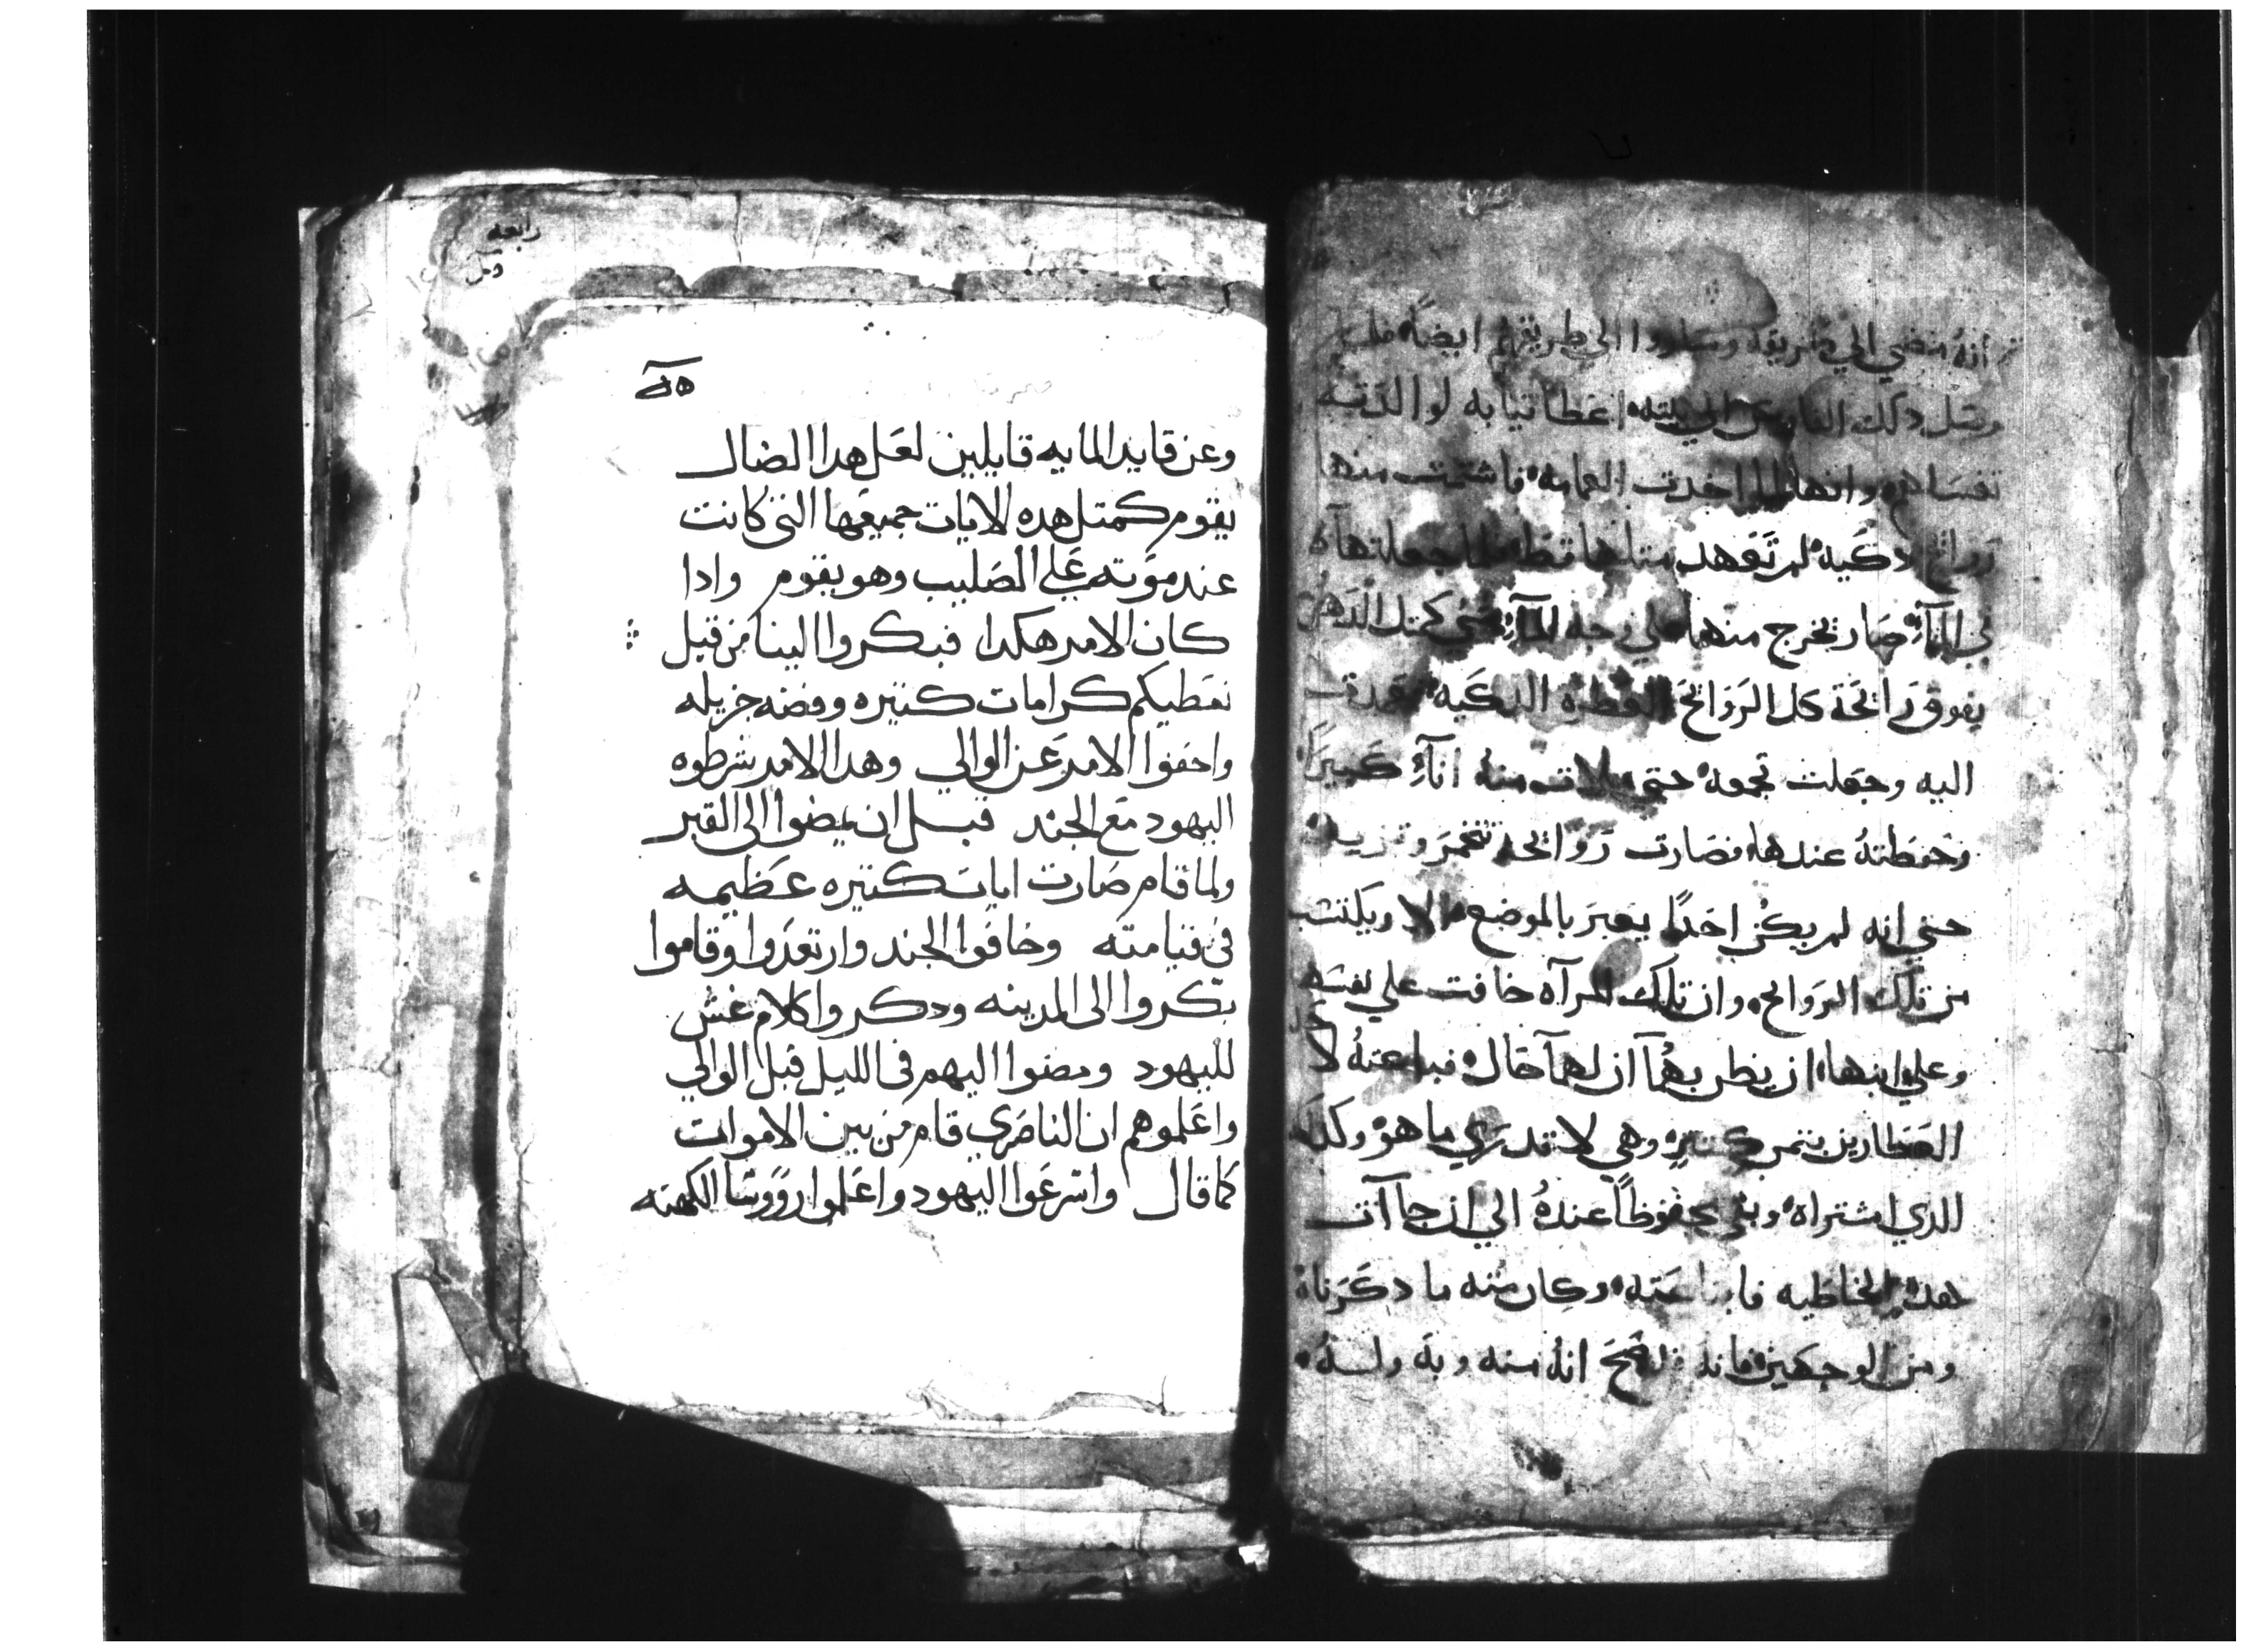 انهُ مضي الي طريقه وساروا الي طريقهم ايضاً فلما
وصل دلك الى بيته اعطا تيابه لوالدته
تغسلهم وانها لما اخدت العمامه فاشتمت منها
روايح دكيه لم تعهد متلها قط فلما جعلتها
في المآءِ صار يخرج منها علي وجه المآءِ شي كمتل الدهن
يفوق رائحة كل الروائح العطره الدكيه فعمدت
اليه وجعلت تجمعه حتي ملات منه انآءِ كبيراً
وحفظتهُ عندها فصارت روايحه تتخمر وتزيد
حتي انه لم يكن احداً يعبر بالموضع الا ويكتسب
من تلك الروايح وان تلك المرآه خافت علي نفسها
وعلي ابنها ان ينظر بهمآ ان لهمآ مال فباعتهُ لا
العطارين بتمن كتير وهي لا تدري ما هو وكدلك
الدي اشتراه وبقي محفوظاً عندهُ الي ان جآآت
هده الخاطيه فابتاعته وكان منه ما دكرناه
ومن الوجهين فانه قد صح انهُ منه وبه ولهُ
رابعه
وعن قايد المايه قايلين لعل هدا الضال
يقوم كمتل هده الايات جميعها التي كانت
عند موته علي الصليب وهو يقوم وادا
كان الامر هكدا فبكروا الينا من قبل
نعطيكم كرامات كتيره وفضه جزيله
واخفوا الامر عن الوالي وهدا الامر شرطوه
اليهود مع الجند قبل ان يمضوا الى القبر
ولما قام صارت ايات كتيره عظيمه
في قيامته وخافوا الجند وارتعدوا وقاموا
بكروا الى المدينه ودكروا كلام غش
لليهود ومضوا اليهم في الليل قبل الوالي
واعلموهم ان الناصري قام من بين الاموات
كما قال واسرعوا اليهود واعلموا رووسا الكهنه